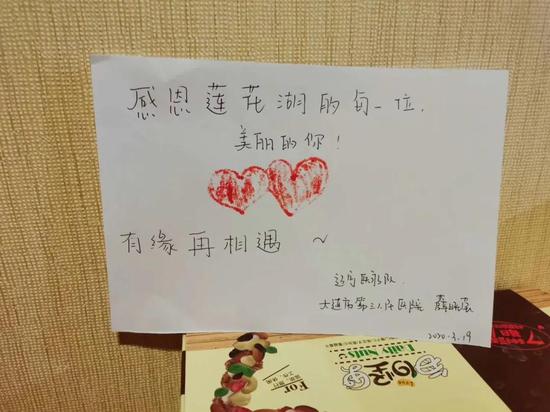 感恩莲花湖的每一位,
美丽的你!
有缘再相遇 ~
辽宁医疗队
大连市第三人民医院
2020.3.19
Daily Nuts
For